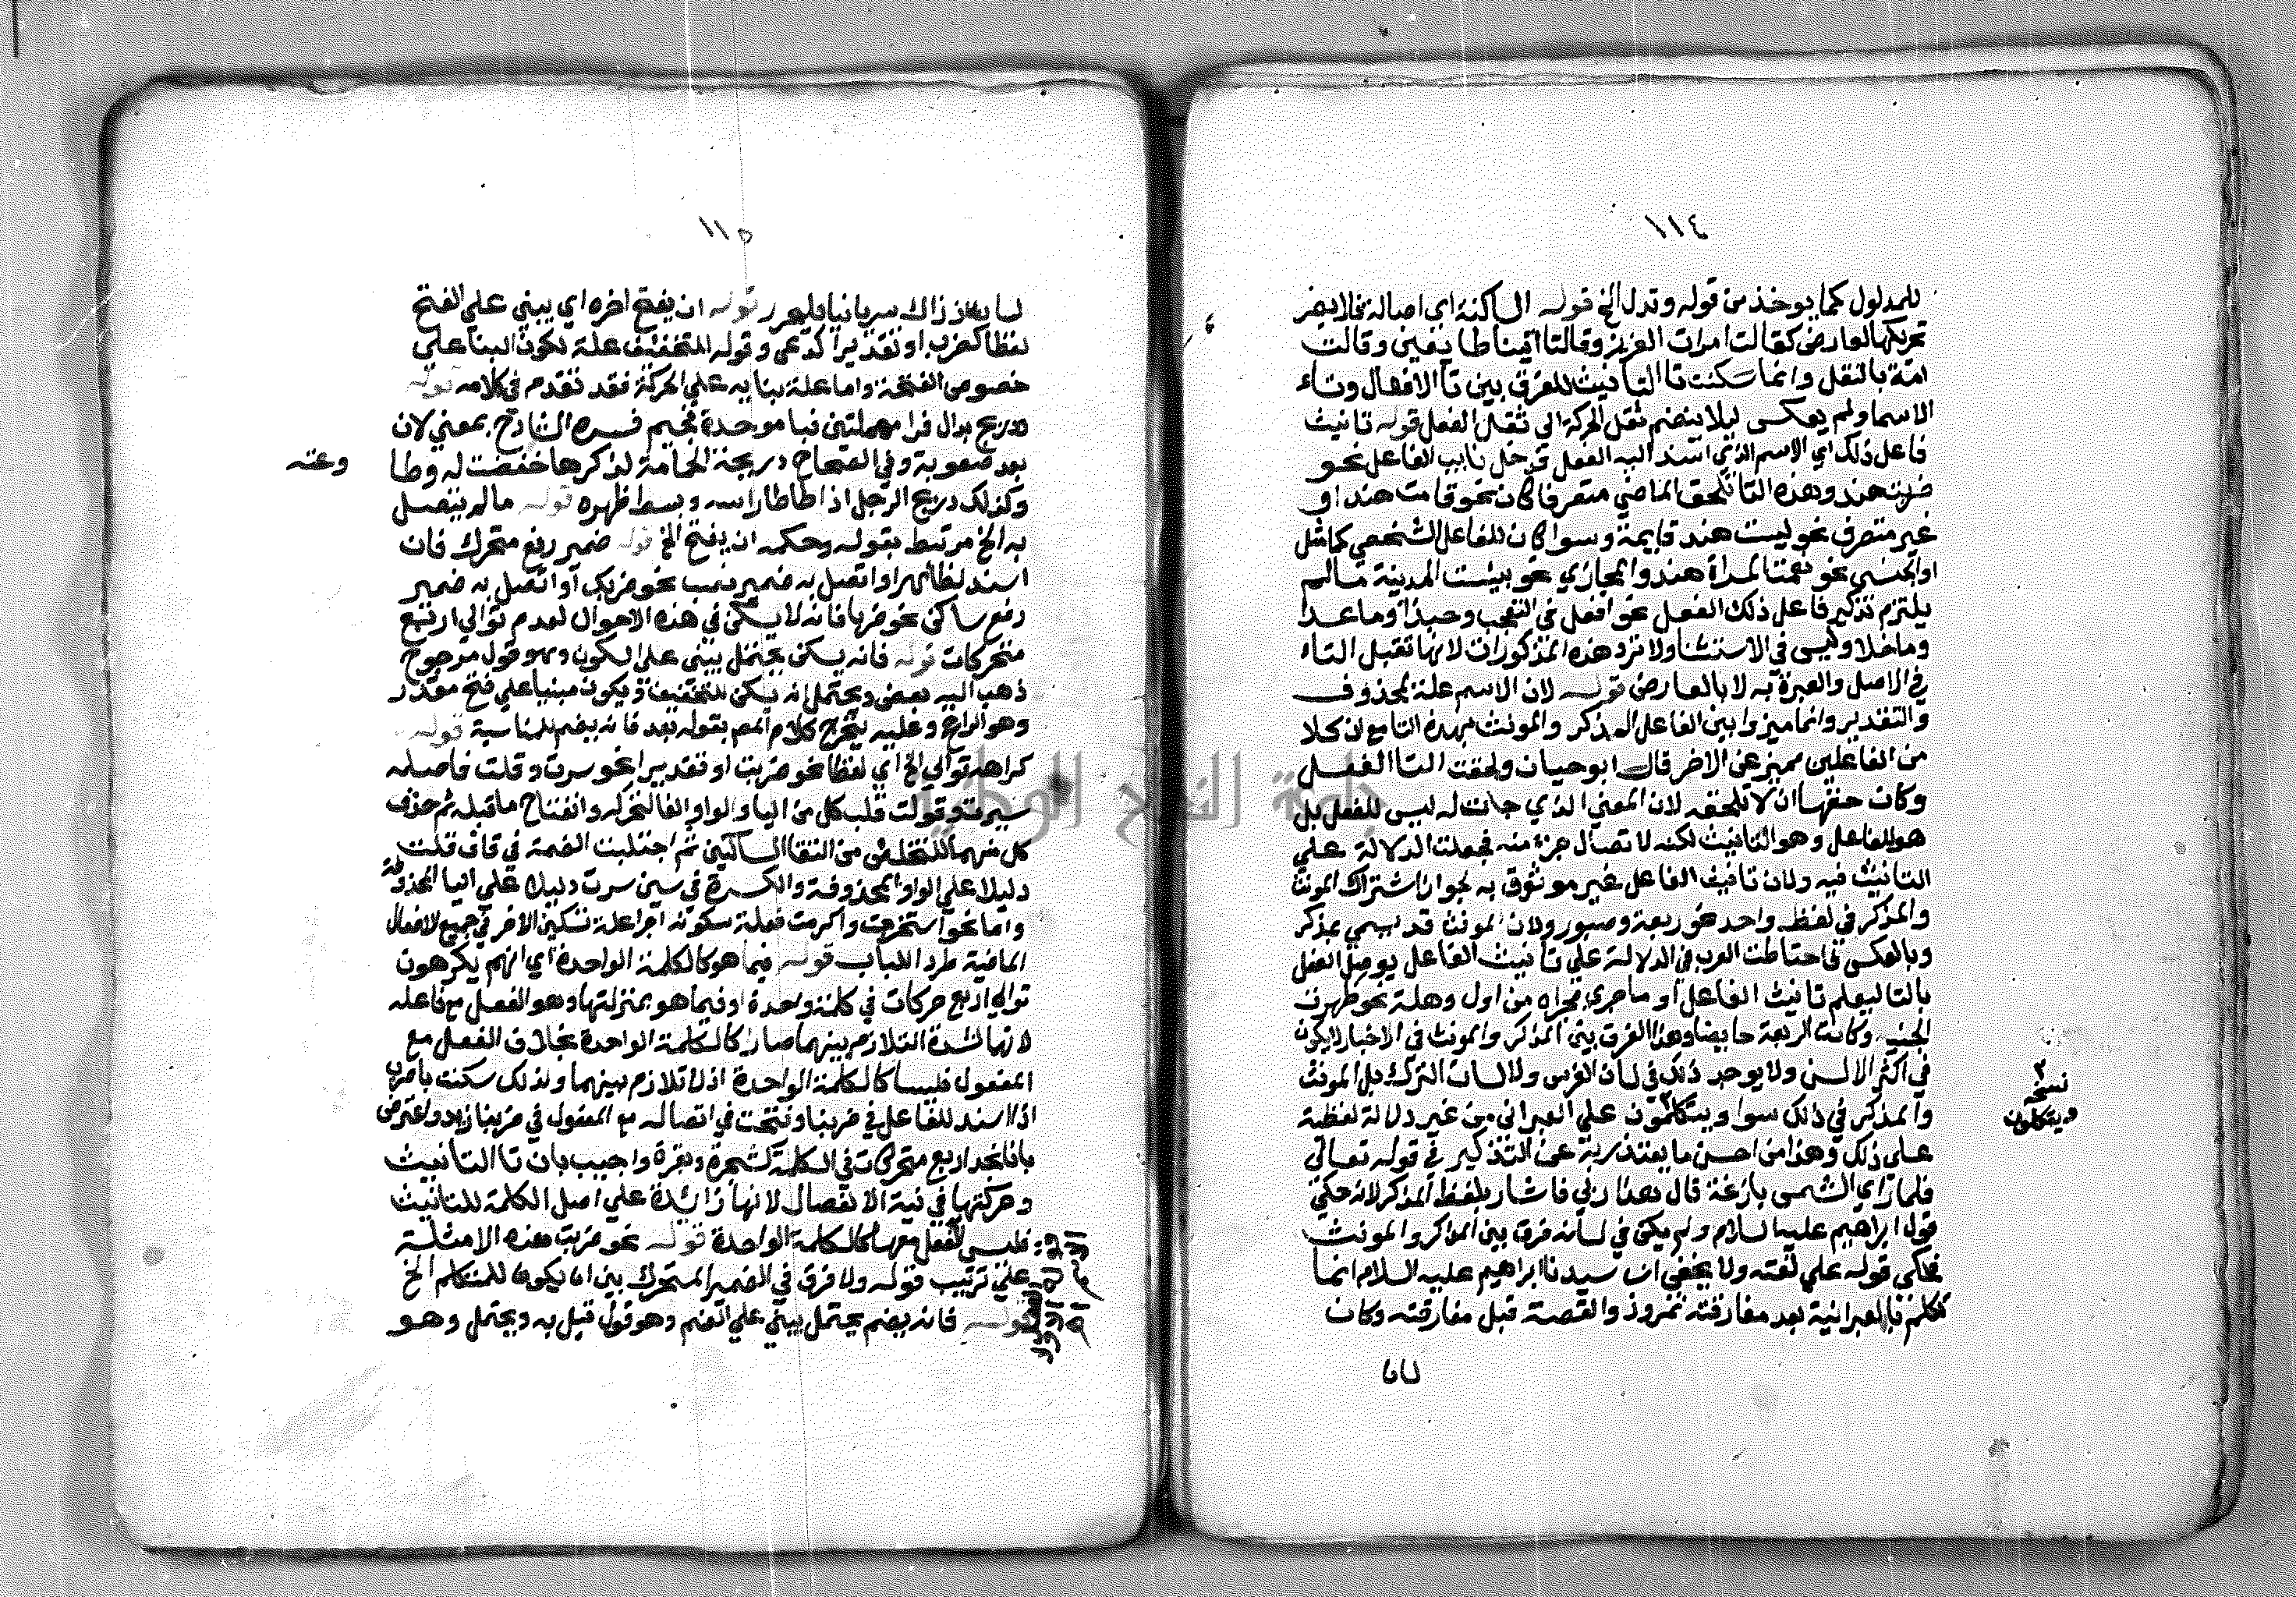 ١١٤
للمدلول كما يوخذ من قوله وتدل الخ قوله الساكنة اي اصالة فلا يضر
تحريكها العارض كقالت امرات العزيز وقالتا اتينا طايعين وقالت
امة بالنقل وانما سكنت تا التانيث للفرق بين تا الافعال وتاء
الاسما ولم يعكس ليلا ينضم ثقل الحركة الي ثقل الفعل قوله تانيث
فاعل ذلك اي الاسم الذي اسند اليه الفعل فدخل نايب الفاعل نحو
ضربت هند وهذه التا تلحق الماضي متصرفا كان نحو قامت هند او
غير متصرف نحو ليست هند قايمة وسوا كان للفاعل الشخصي كما مثل
او الجنسي نحو نعمت المراة هند والمجازي نحو بيئست المدينة مالم
يلتزم تذكير فاعل ذلك الفعل نحو افعل في التعجب وحبذا وما عدا
وما خلا وليس في الاستثنا ولا ترد هذه المذكورات لانها تقبل التاء
في الاصل والعبرة به لا بالعارض قوله لان الاسم علة لمحذوف
والتقدير وانما ميزوا بين الفاعل المذكر والمونث بهذه التا مع ان كلا
من الفاعلين مميز عن الاخر قال ابو حيان ولحقت التا الفعل
وكان حقها ان لا تلحقه لان المعني الذي جات له ليس للفعل بل
هو للفاعل وهو التانيث لكنه لاتصال جزء منه فجعلت الدلالة علي
التانيث فيه ولان تانيث الفاعل غير موثوق به لجواز اشتراك المونث
والمذكر في لفظ واحد نحو ربعة وصبور ولان المونث قد يسمي بمذكر
وبالعكس فاحتاطت العرب في الدلالة علي تانيث الفاعل بوصل الفعل
بالتا ليعلم تانيث الفاعل او ما جري مجراه من اول وهلة نحو طهرت
الجنب وكانت الربعة حايضا وهذا الفرق بين المذكر والمونث في الاخبار لا يكون
في اكثر الالسن ولا يوجد ذلك في لسان الفرس ولا لسان الترك بل المونث
والمذكر في ذلك سوا ويتكلمون علي العبراني من غير دلالة لفظية
نسخة
ويتكلون
علي ذلك وهذا من احسن ما يعتذر به عن التذكير في قوله تعالي
فلما راي الشمس بازغة قال هذا ربي فاشار بلفظ المذكر لانه حكي
قول ابراهيم عليه السلام ولم يكن في لسانه فرق بين المذكر والمونث
فحكي قوله علي لغته ولا يخفي ان سيدنا ابراهيم عليه السلام انما
تكلم بالعبرانية بعد مفارقته نمروذ والقصة قبل مفارقته وكان
١١٥
ان يفتح اخره اي يبني علي الفتح
لفظا كضرب او تقديرا كدعي وقوله للتخفيف علة لكون البنا علي
خصوص الفتحة واما علة بنايه علي الحركة فقد تقدم في كلامه قوله
دربح بدال فرا مهملتين فبا موحدة فجيم فسره الشارح بمعني لان
بعد صعوبة وفي الصحاح دربجة الحمامة لذكرها خضعت له وطا
وعته
وكذلك دربح الرجل اذا طاطا راسه وبسط ظهره قوله مالم يتصل
به الخ مرتبط بقوله وحكمه ان يفتح الخ قوله ضمير رفع متحرك فان
اسند لظاهر او اتصل به ضمير نصب نحو ضربك او اتصل به ضمير
رفع ساكن نحو ضربا فانه لا يسكن في هذه الاحوال لعدم توالي اربع
متحركات قوله فانه يسكن يحتمل يبني علي السكون وهو قول مرجوح
ذهب اليه بعض ويحتمل انه يسكن للتخفيف ويكون مبنيا علي فتح مقدر
وهو الراجح وعليه يتخرج كلام المص بقوله بعد فانه يضم للمناسبة قوله
كراهة توالي الخ اي لفظا نحو ضربت او تقديرا نحو سرت وقلت فاصله
سيرت وقولت قلب كل من اليا والواو الفا لتحركه وانفتاح ما قبله ثم حذف
كل منهما للتخلص من التقا الساكنين ثم اجتلبت الضمة في قاف قلت
دليلا علي الواو المحذوفة والكسرة في سين سرت دليلا علي اليا المحذوفة
واما نحو استخرجت واكرمت فعلة سكونه اجرا علة تسكين الاخر في جميع الافعال
الماضية طرد اللباب قوله فيما هو كالكلمة الواحدة اي انهم يكرهون
توالي اربع حركات في كلمة واحدة او فيما هو بمنزلتها وهو الفعل مع فاعله
لانهما لشدة التلازم بينهما صار كالكلمة الواحدة بخلاف الفعل مع
المفعول فليسا كالكلمة الواحدة اذ لا تلازم بينهما ولذلك سكنت با ضرب
اذا اسند للفاعل في ضربنا وفتحت في اتصاله مع المفعول في ضربنا زيد واعترض
بانا نجد اربع متحركات في الكلمة كشجرة وبقرة واجيب بان تا التانيث
وحركتها في نية الانفصال لانها زائدة علي اصل الكلمة للتانيث
فليس الفعل معها كالكلمة الواحدة قوله نحو ضربت هذه الامثلة
علي ترتيب قوله ولا فرق في الضمير المتحرك بين ان يكون للمتكلم الخ
قوله فانه يضم يحتمل يبني علي الضم وهو قول قيل به ويحتمل وهو